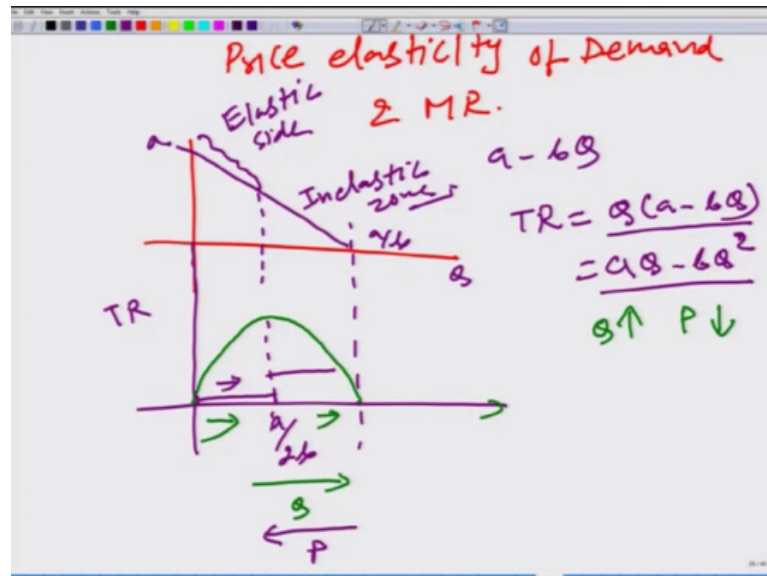 Price elasticity of Demand
& MR.
Elastic
side
a
a - bQ
Inelastic
zone
a/b
Q
TR = Q(a - bQ)
= aQ - bQ²
Q↑ P↓
TR
a/
2b
Q
P